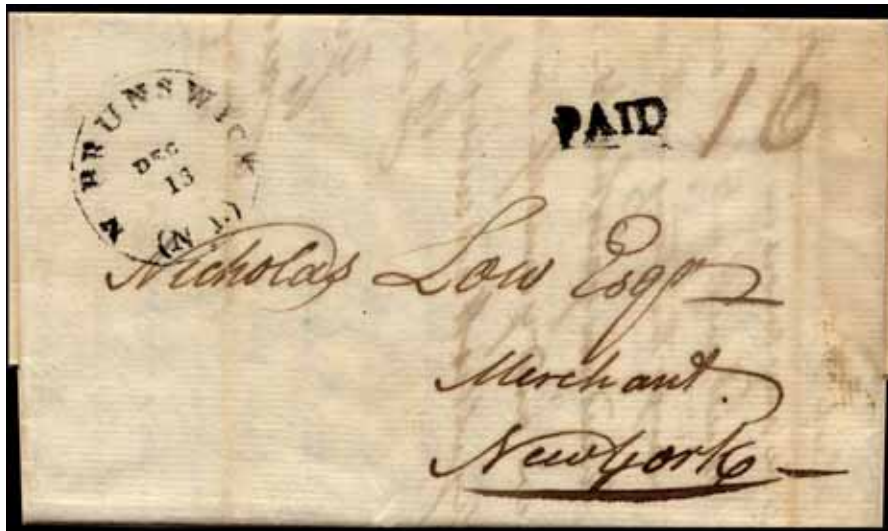 N BRUNSWICK
DEC
13
(N J.)
PAID
16
Nicholas Low Esqr
Merchant.
New York